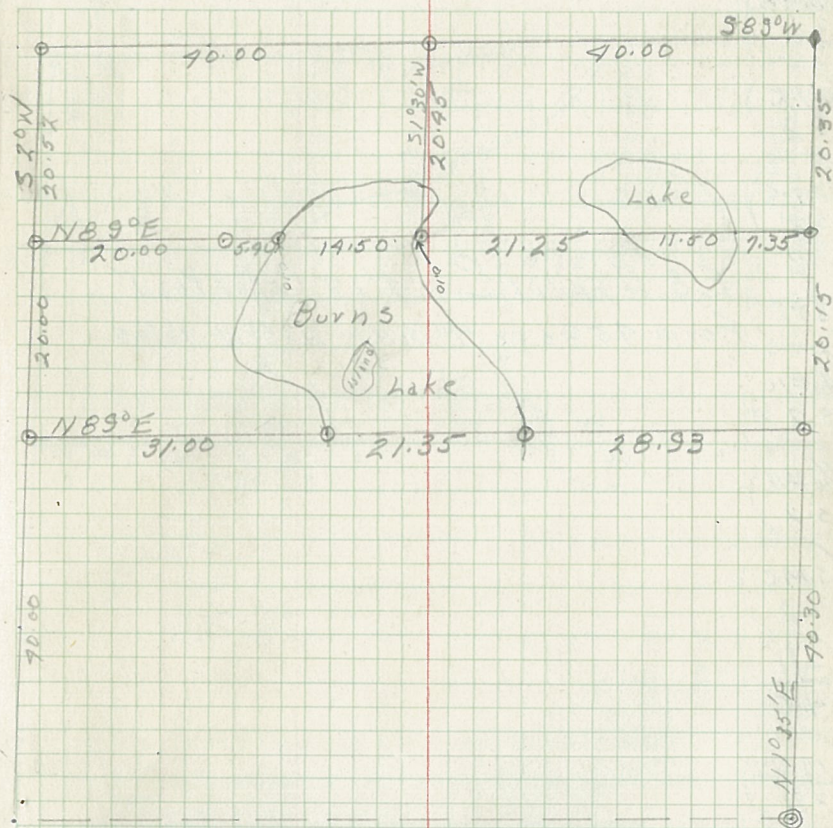 S89°W
40.00
40.00
S2°W
20.52
S1°30'W
20.45
20.35
Lake
N89°E
20.00
5.90
14.50
21.25
11.50
7.35
Burns
Island
Lake
20.00
20.15
N89°E
31.00
21.35
28.93
40.00
40.30
N1°25'E